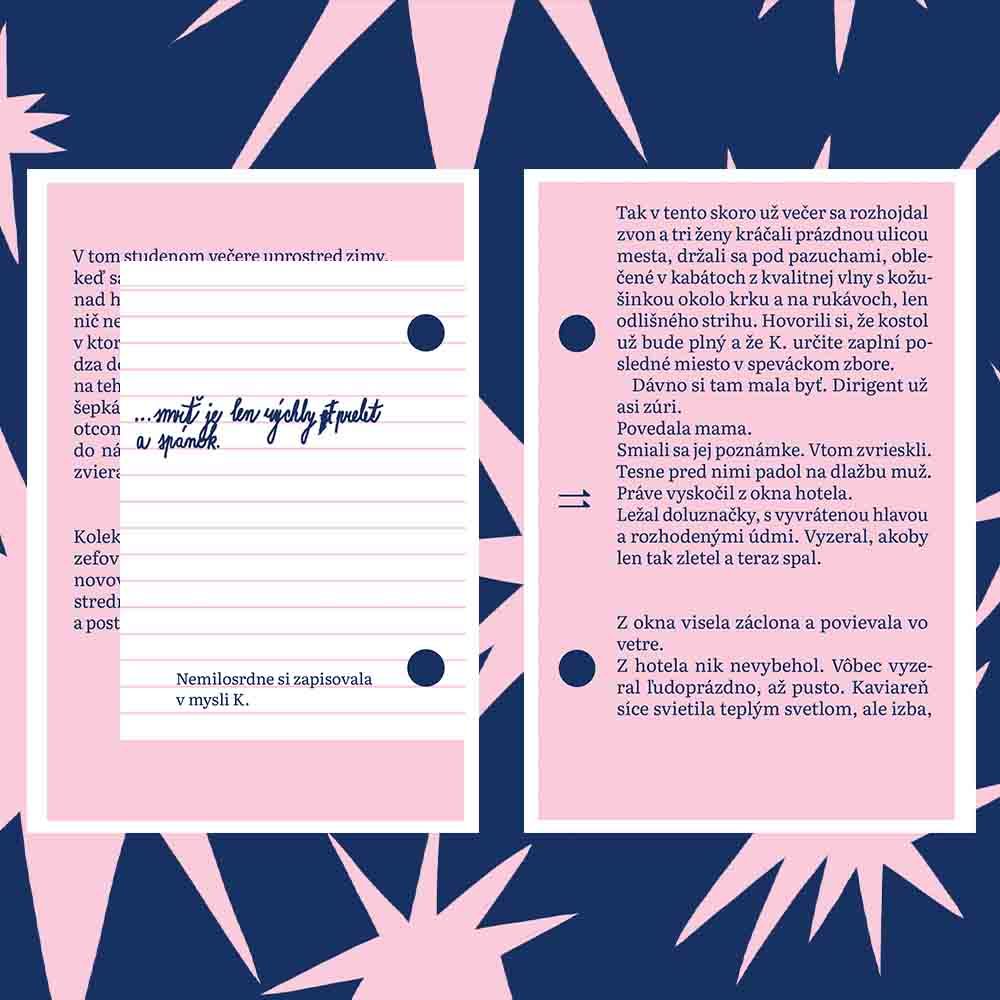 V tom studenom večere uprostred zimy,
keď
nad
nič
v
dza
na
do
a
...smrť je len rýchly prelet
a spánok.
Nemilosrdne si zapisovala
v mysli K.
Tak v tento skoro už večer sa rozhojdal
zvon a tri ženy kráčali prázdnou ulicou
mesta, držali sa pod pazuchami, oble-
čené v kabátoch z kvalitnej vlny s kožu-
šinkou okolo krku a na rukávoch, len
odlišného strihu. Hovorili si, že kostol
už bude plný a že K. určite zaplní po-
sledné miesto v speváckom zbore.
Dávno si tam mala byť. Dirigent už
asi zúri.
Povedala mama.
Smiali sa jej poznámke. Vtom zvrieskli.
Tesne pred nimi padol na dlažbu muž.
Práve vyskočil z okna hotela.
Ležal doluznačky, s vyvrátenou hlavou
a rozhodenými údmi. Vyzeral, akoby
len tak zletel a teraz spal.
Z okna visela záclona a povievala vo
vetre.
Z hotela nik nevybehol. Vôbec vyze-
ral ľudoprázdno, až pusto. Kaviareň
síce svietila teplým svetlom, ale izba,